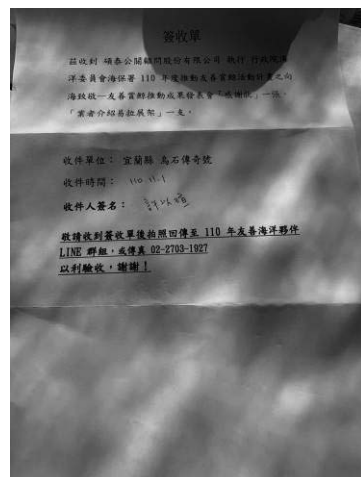 簽收單
茲收到 碩泰公關顧問股份有限公司 執行 行政院海
洋委員會海保署 110 年度推動友善賞鯨活動計畫之向
海致敬—友善賞鯨推動成果發表會「感謝狀」一張、
「業者介紹易拉展架」一支。
收件單位: 宜蘭縣 烏石傳奇號
收件時間: 110.11.1
收件人簽名: 許以瑄
敬請收到簽收單後拍照回傳至 110 年友善海洋夥伴
LINE 群組,或傳真 02-2703-1927
以利驗收,謝謝!